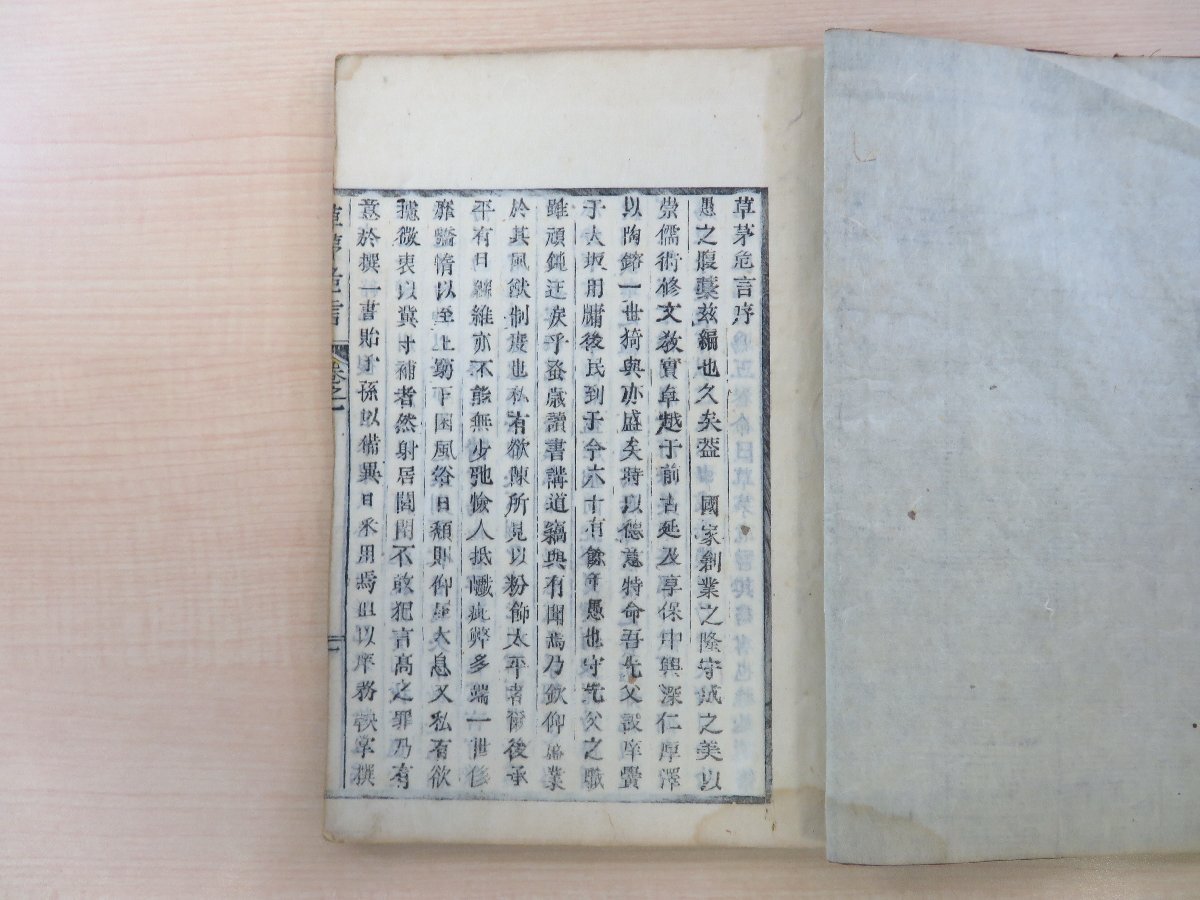 草茅危言序
愚之腹藁茲編也久矣蓋　國家創業之隆守成之美以
崇儒術修文教實卓越于前古延及享保中興深仁厚澤
以陶鎔一世猗與亦盛矣時以德意特命吾先父設庠黌
于大坂用牖後民到于今六十有餘年愚也守先父之職
雖頑鈍迂戾乎蚤歲讀書講道竊與有聞焉乃欽仰盛業
於其風猷制度也私有欲陳所見以粉飾太平者爾後承
平有日綱維亦不能無少弛憸人抵巇疵弊多端一世侈
靡驕惰以至上窮下困風俗日頹則仰屋大息又私有欲
攄微衷以冀寸補者然躬居閭閻不敢犯言高之罪乃有
意於撰一書貽子孫以備異日采用焉但以庠務鞅掌撰
草茅危言
卷之一
一